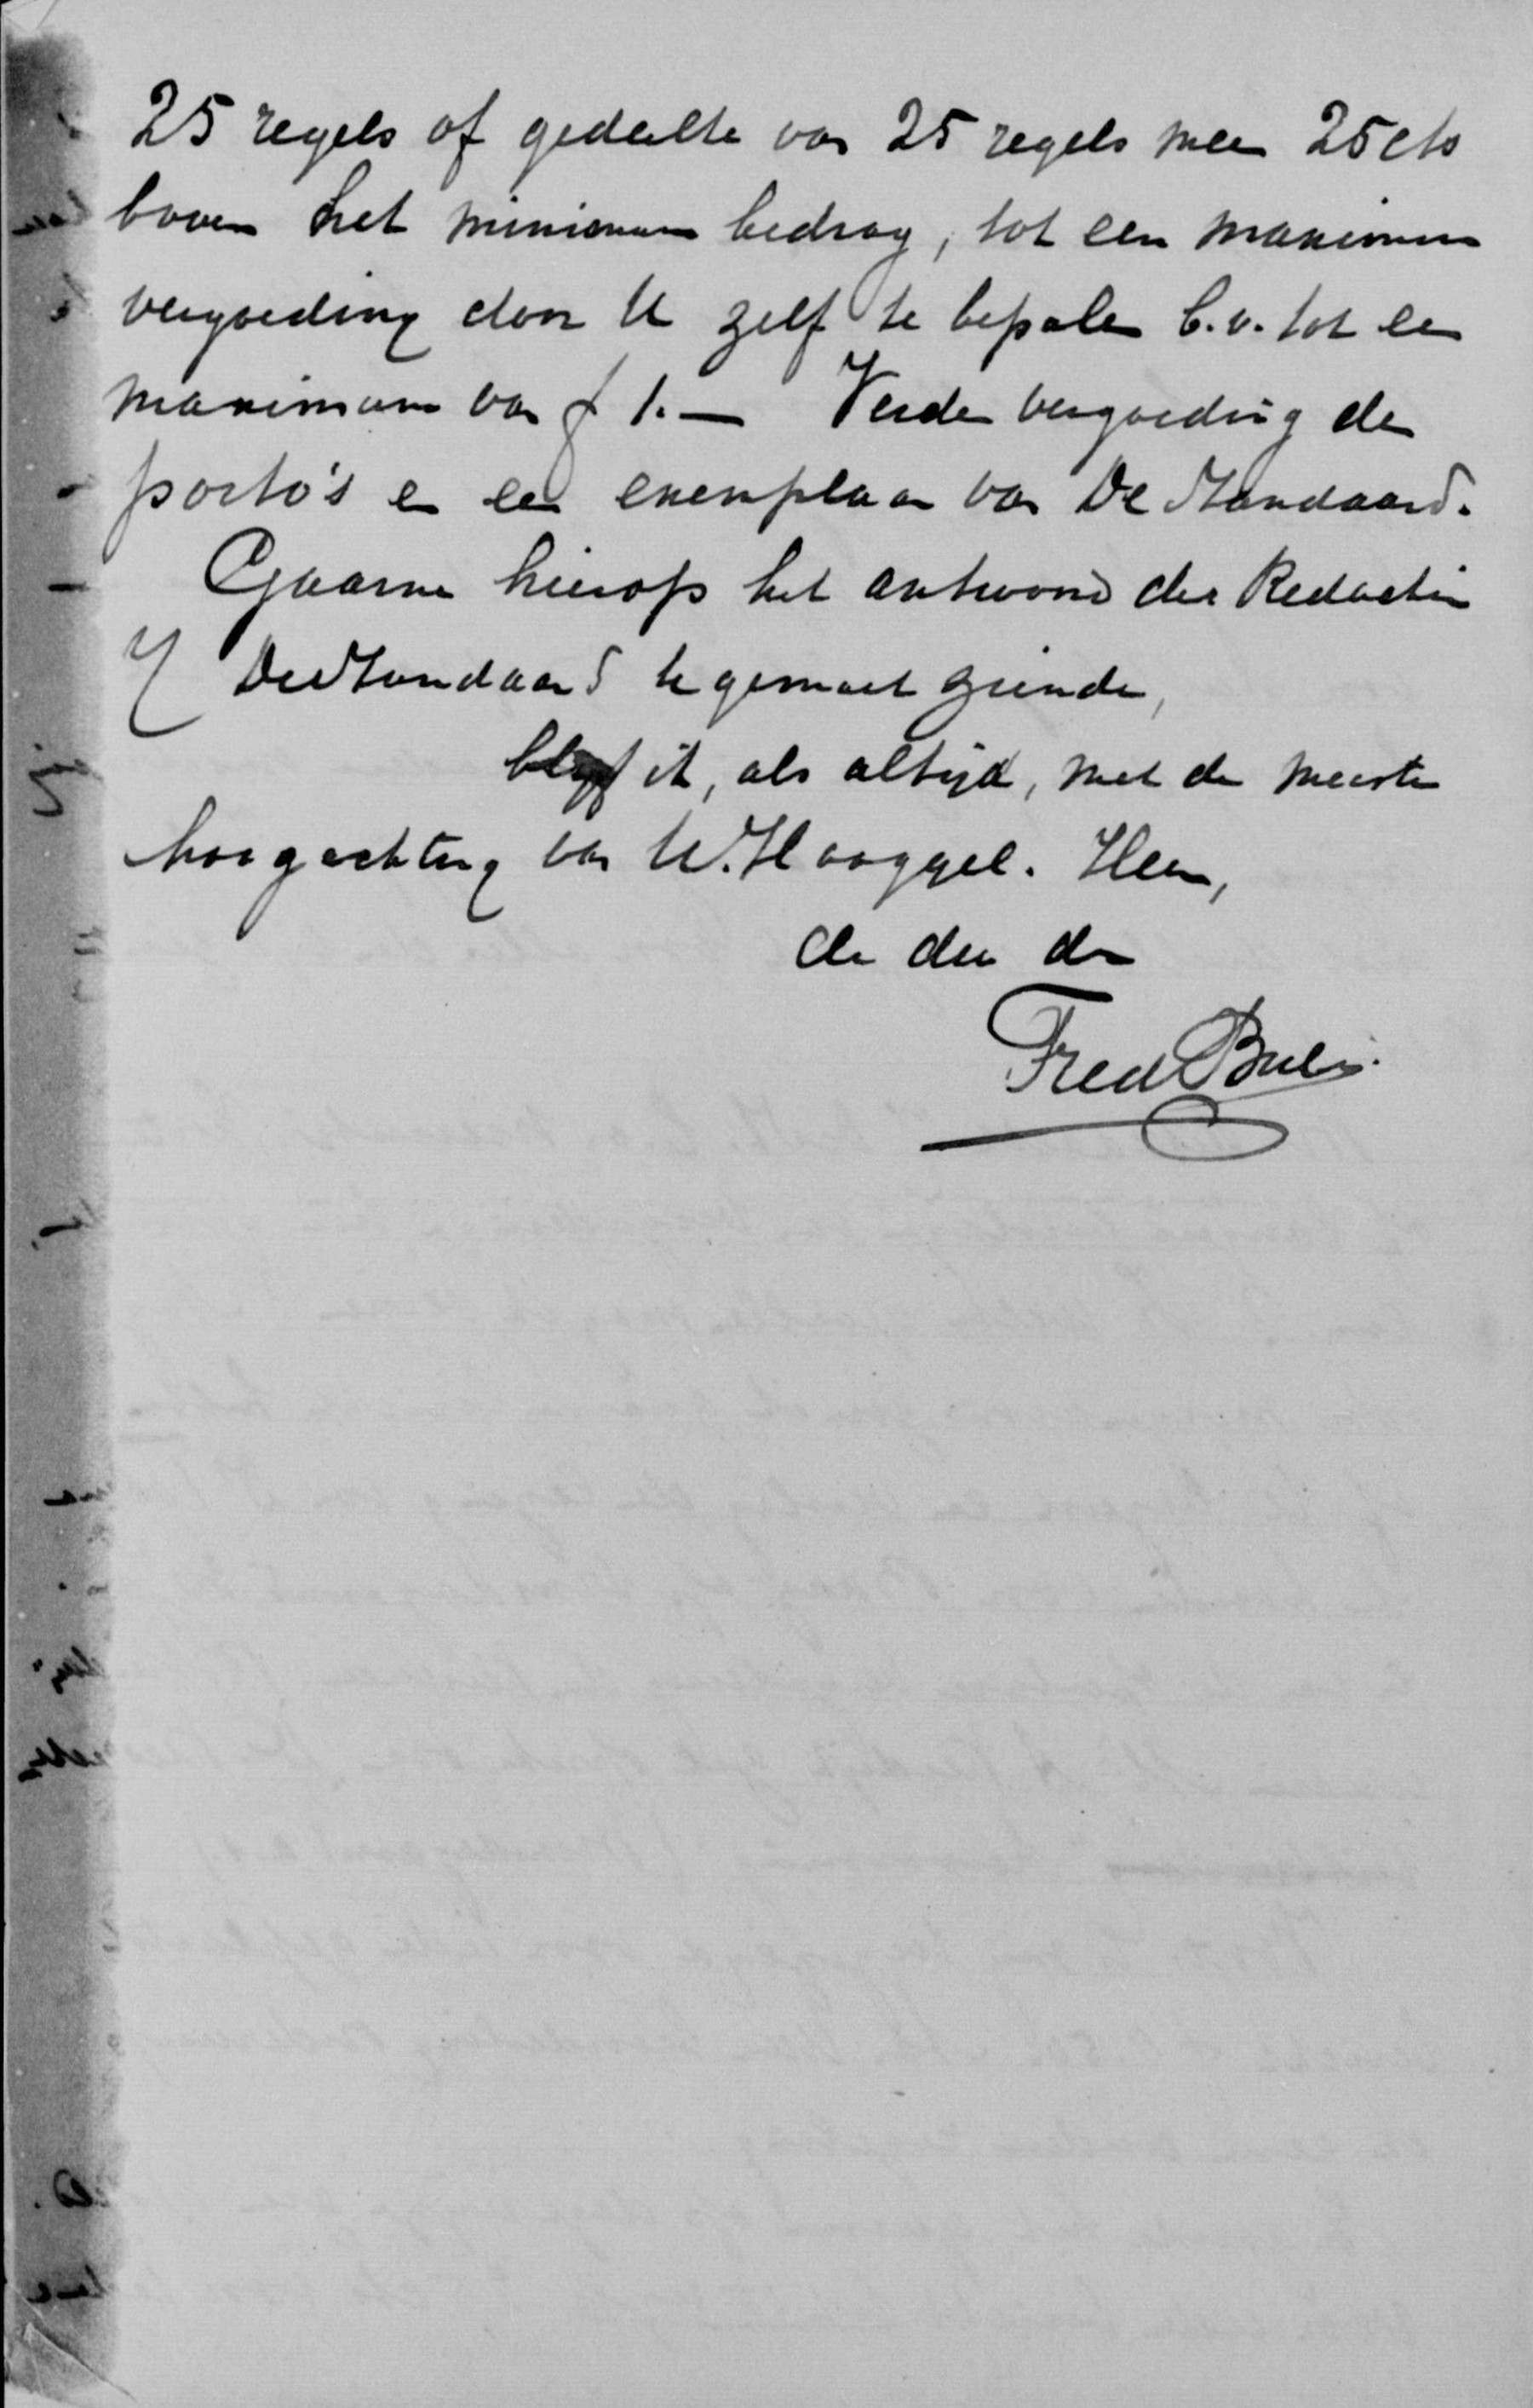 25 regels of gedeelte van 25 regels meer 25 cts
boven het minimum bedrag, tot een maximum
vergoeding door U zelf te bepalen b.v. tot een
maximum van f 1.— Verder vergoeding der
porto's en een exemplaar van De Standaard.
Gaarne hierop het antwoord der Redactie
v/ De Standaard tegemoet ziende,
blijf ik, als altijd, met de meeste
hoogachting van U. Hooggel. Heer,
de dw dr
Fred